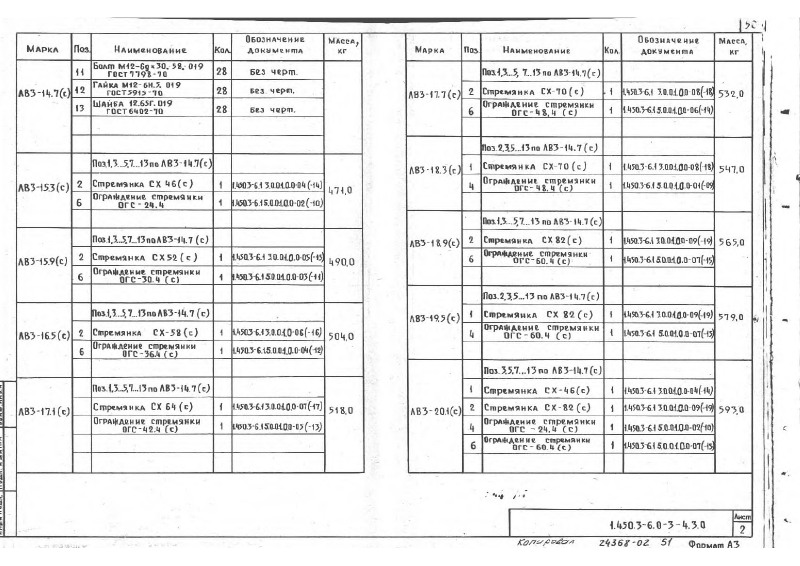 50
Марка Поз. Наименование Кол. Обозначение документа Масса, кг
ЛВ3-14.7(с) 11 Болт М12-6g×30. 58. 019 ГОСТ 7798-70 28 Без черт.
12 Гайка М12-6Н.5. 019 ГОСТ 5915-70 28 Без черт.
13 Шайба 12.65Г. 019 ГОСТ 6402-70 28 Без черт.
ЛВ3-15.3(с) Поз.1,3...5,7...13 по ЛВ3-14.7(с) 471,0
2 Стремянка СХ 46(с) 1 1.450.3-6.1 3.0.0.1.0.0-04(-14)
6 Ограждение стремянки ОГС-24.4 1 1.450.3-6.1 5.0.0.1.0.0-02(-10)
ЛВ3-15.9(с) Поз.1,3...5,7...13 по ЛВ3-14.7(с) 490,0
2 Стремянка СХ 52(с) 1 1.450.3-6.1 3.0.0.1.0.0-05(-15)
6 Ограждение стремянки ОГС-30.4(с) 1 1.450.3-6.1 5.0.0.1.0.0-03(-11)
ЛВ3-16.5(с) Поз.1,3...5,7...13 по ЛВ3-14.7(с) 504,0
2 Стремянка СХ-58(с) 1 1.450.3-6.1 3.0.0.1.0.0-06(-16)
6 Ограждение стремянки ОГС-36.4(с) 1 1.450.3-6.1 5.0.0.1.0.0-04(-12)
ЛВ3-17.1(с) Поз.1,3...5,7...13 по ЛВ3-14.7(с) 518,0
Стремянка СХ 64(с) 1 1.450.3-6.1 3.0.0.1.0.0-07(-17)
Ограждение стремянки ОГС-42.4(с) 1 1.450.3-6.1 5.0.0.1.0.0-05(-13)
Марка Поз. Наименование Кол. Обозначение документа Масса, кг
ЛВ3-17.7(с) Поз.1,3...5, 7...13 по ЛВ3-14.7(с) 532,0
2 Стремянка СХ-70(с) 1 1.450.3-6.1 3.0.0.1.0.0-08(-18)
6 Ограждение стремянки ОГС-48.4(с) 1 1.450.3-6.1 5.0.0.1.0.0-06(-14)
ЛВ3-18.3(с) Поз.2,3,5...13 по ЛВ3-14.7(с) 547,0
1 Стремянка СХ-70(с) 1 1.450.3-6.1 3.0.0.1.0.0-08(-18)
4 Ограждение стремянки ОГС-48.4(с) 1 1.450.3-6.1 5.0.0.1.0.0-01(-09)
ЛВ3-18.9(с) Поз.1,3...5,7...13 по ЛВ3-14.7(с) 565,0
2 Стремянка СХ 82(с) 1 1.450.3-6.1 3.0.0.1.0.0-09(-19)
6 Ограждение стремянки ОГС-60.4(с) 1 1.450.3-6.1 5.0.0.1.0.0-07(-15)
ЛВ3-19.5(с) Поз.2,3,5...13 по ЛВ3-14.7(с) 579,0
1 Стремянка СХ 82(с) 1 1.450.3-6.1 3.0.0.1.0.0-09(-19)
4 Ограждение стремянки ОГС-60.4(с) 1 1.450.3-6.1 5.0.0.1.0.0-07(-15)
ЛВ3-20.1(с) Поз.3,5,7...13 по ЛВ3-14.7(с) 593,0
1 Стремянка СХ-46(с) 1 1.450.3-6.1 3.0.0.1.0.0-04(-14)
2 Стремянка СХ-82(с) 1 1.450.3-6.1 3.0.0.1.0.0-09(-19)
4 Ограждение стремянки ОГС-24.4(с) 1 1.450.3-6.1 5.0.0.1.0.0-02(-10)
6 Ограждение стремянки ОГС-60.4(с) 1 1.450.3-6.1 5.0.0.1.0.0-07(-15)
1.450.3-6.0-3-4.3.0
Лист
2
Копировал 24368-02 51 Формат А3